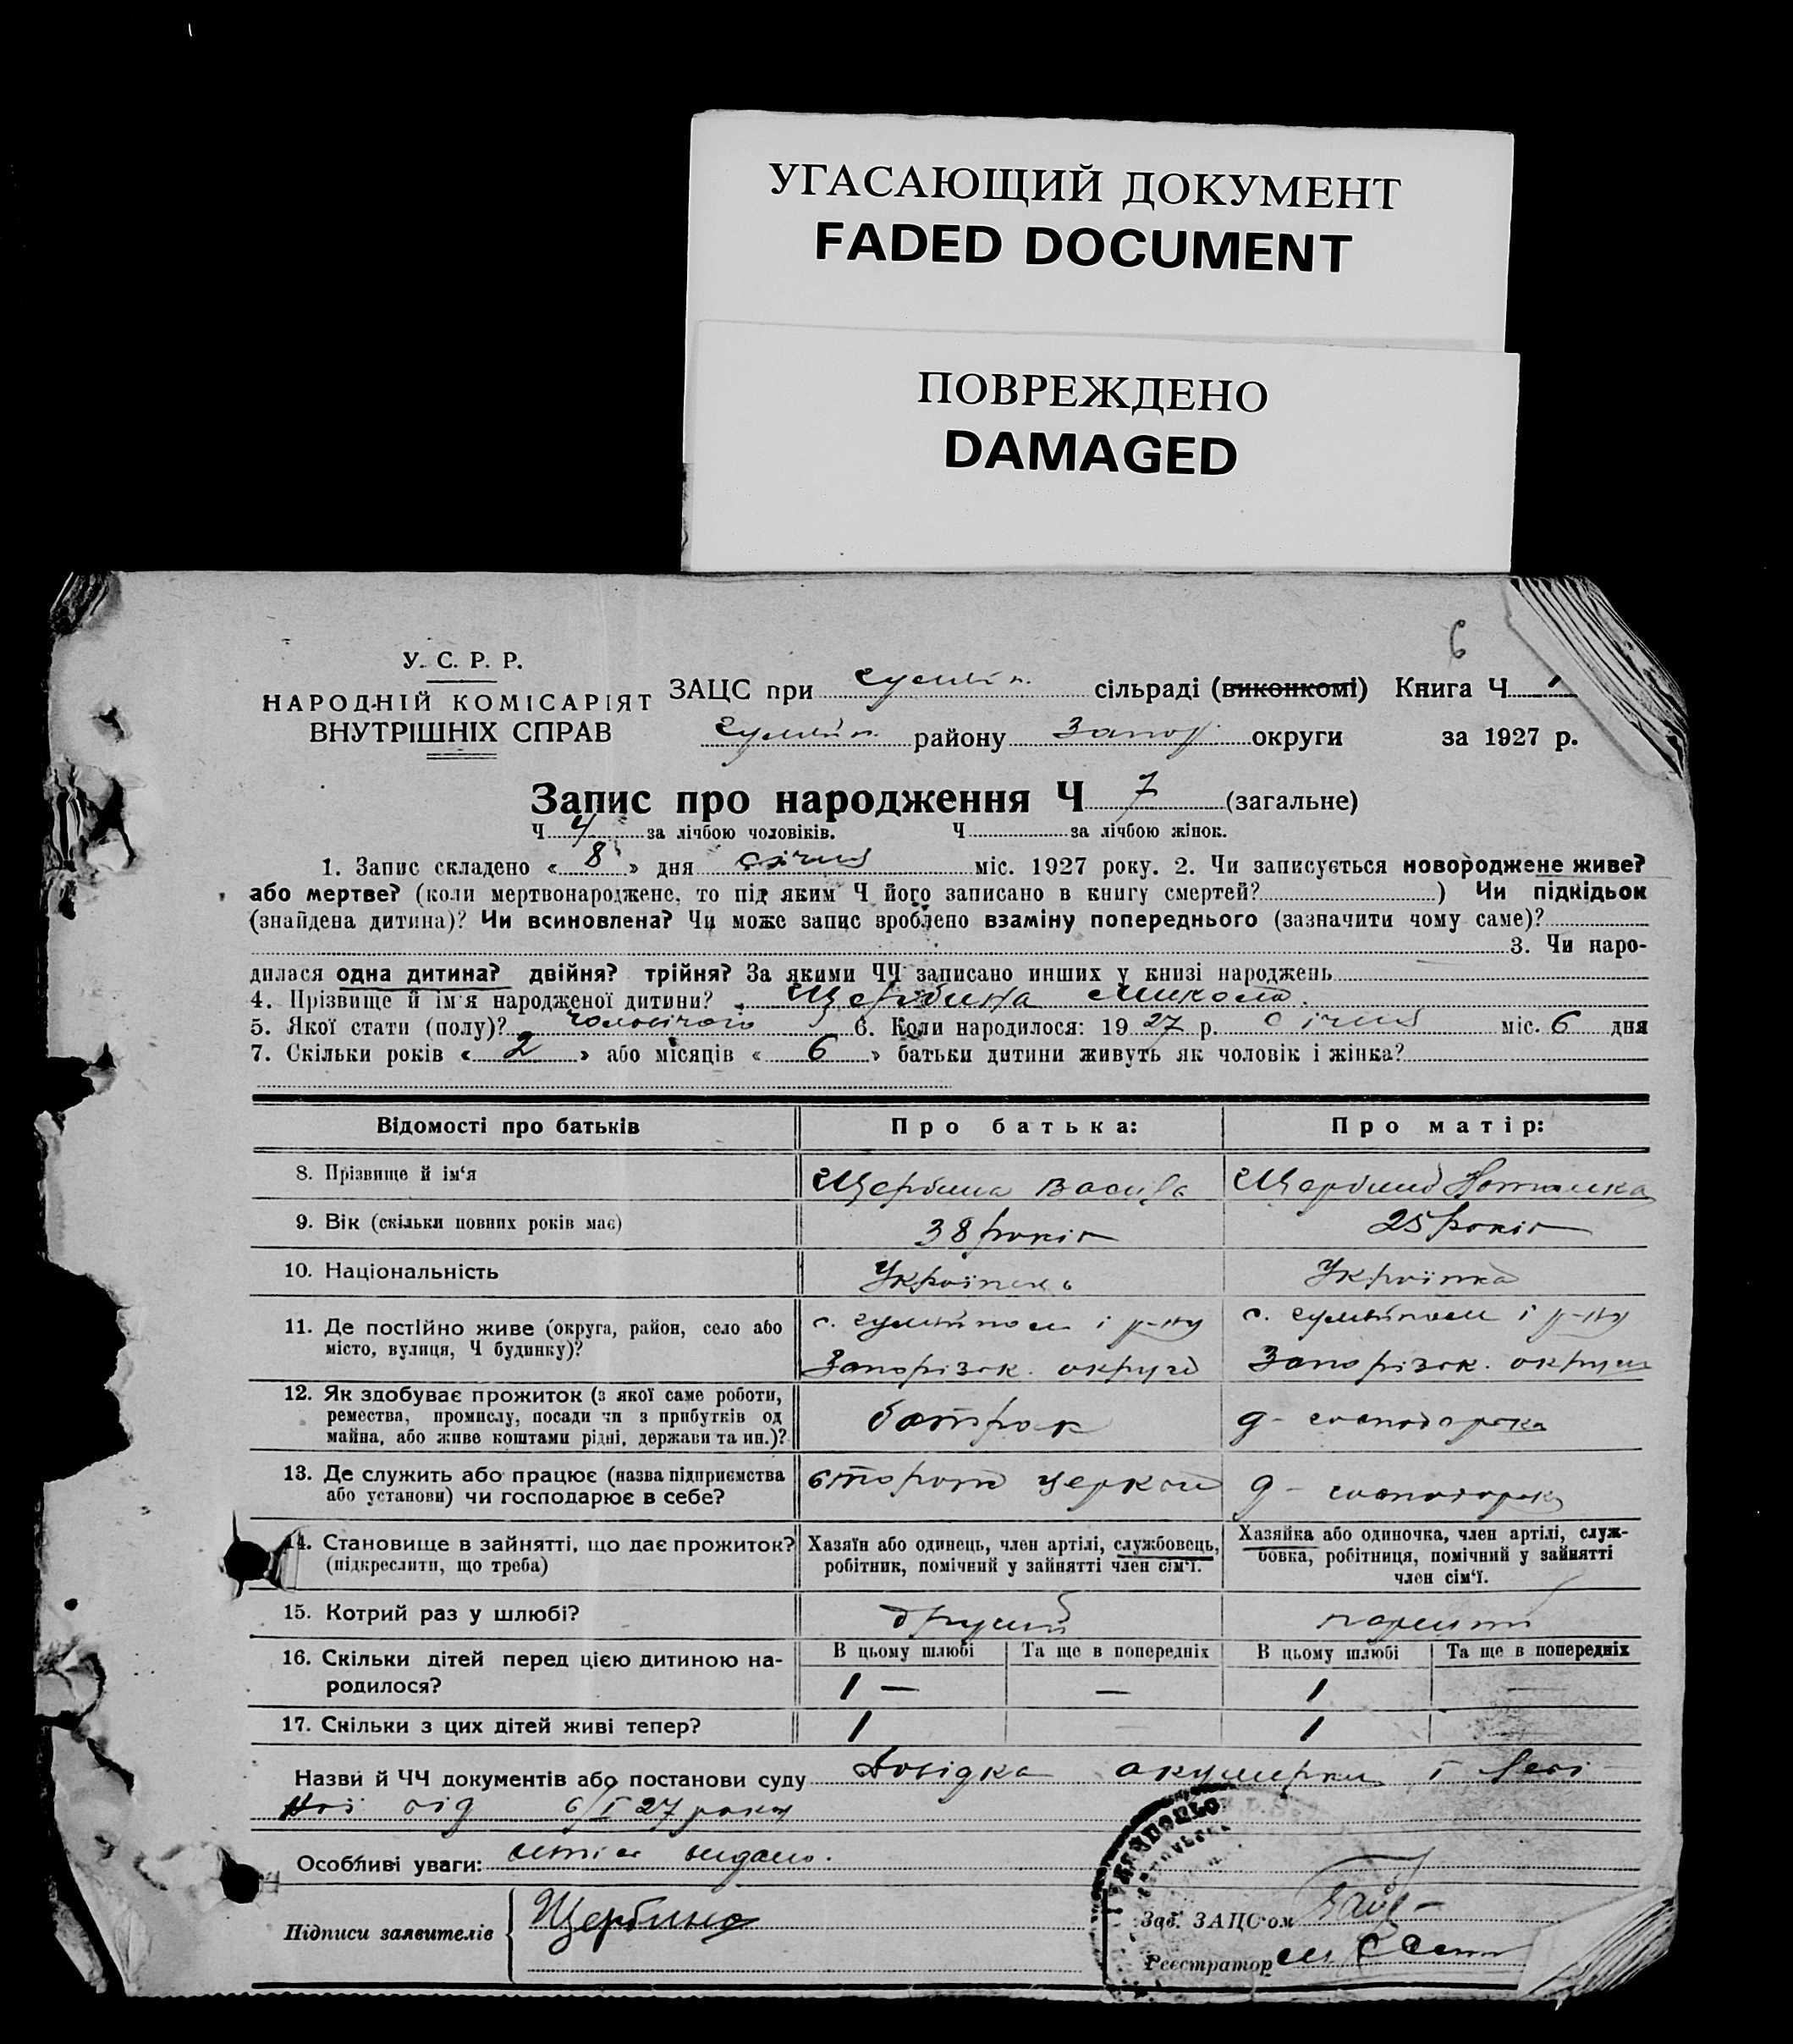 УГАСАЮЩИЙ ДОКУМЕНТ
FADED DOCUMENT
ПОВРЕЖДЕНО
DAMAGED
6
У. С. Р. Р.
НАРОДНІЙ КОМІСАРІЯТ
ВНУТРІШНІХ СПРАВ
ЗАЦС при сільраді (виконкомі) Книга Ч
району Запор округи за 1927 р.
Запис про народження Ч 7 (загальне)
Ч 4 за лічбою чоловіків. Ч за лічбою жінок.
1. Запис складено « 8 » дня січня міс. 1927 року. 2. Чи записується новороджене живе?
або мертве? (коли мертвонароджене, то під яким Ч його записано в книгу смертей? ) Чи підкідьок
(знайдена дитина)? Чи всиновлена? Чи може запис зроблено взаміну попереднього (зазначити чому саме)?
3. Чи наро-
дилася одна дитина? двійня? трійня? За якими ЧЧ записано инших у книзі народжень
4. Прізвище й ім'я народженої дитини? Щербина Микола.
5. Якої стати (полу)? чоловічого 6. Коли народилося: 19 27 р. січня міс. 6 дня
7. Скільки років « 2 » або місяців « 6 » батьки дитини живуть як чоловік і жінка?
Відомості про батьків Про батька: Про матір:
8. Прізвище й ім'я Щербина Щербина
9. Вік (скільки повних років має) 38 років 25 років
10. Національність Українець Українка
11. Де постійно живе (округа, район, село або с. і р-ну с. і р-ну
місто, вулиця, Ч будинку)? Запорізок. округи Запорізок. округи
12. Як здобуває прожиток (з якої саме роботи,
ремества, промислу, посади чи з прибутків од батрак д-господарка
майна, або живе коштами рідні, держави та ин.)?
13. Де служить або працює (назва підприємства
або установи) чи господарює в себе? д-господарка
14. Становище в зайнятті, що дає прожиток? Хазяїн або одинець, член артілі, службовець, Хазяйка або одиночка, член артілі, служ-
(підкреслити, що треба) робітник, помічний у зайнятті член сім'ї. бовка, робітниця, помічний у зайнятті
член сім'ї.
15. Котрий раз у шлюбі? другий
16. Скільки дітей перед цією дитиною на- В цьому шлюбі Та ще в попередніх В цьому шлюбі Та ще в попередніх
родилося? 1 — — 1 —
17. Скільки з цих дітей живі тепер? 1 — 1
Назви й ЧЧ документів або постанови суду Довідка акушерки
від 6/I 27 року
Особливі уваги: видано.
Підписи заявителів Щербина
Зав. ЗАЦС'ом
Реєстратор